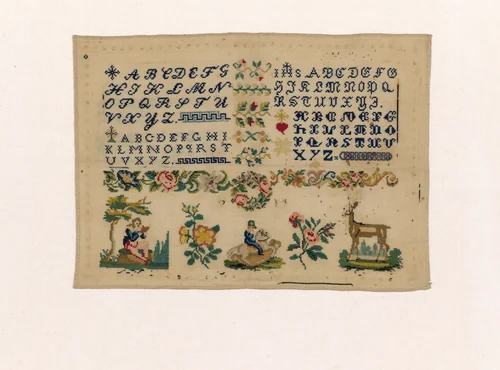 ABCDEFG
HIKLMN
OPQRSTU
VXYZ.
ABCDEFGHI
KLMNOPQRST
UVXYZ.
IHS ABCDEFG
HIKLMNOPQ
RSTUVXYZ.
ABCDEFG
HIKLMNO
PQRSTUV
XYZ